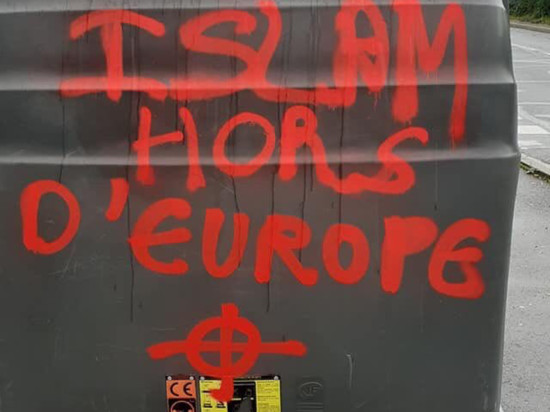 ISLAM
HORS
D'EUROPE
CE